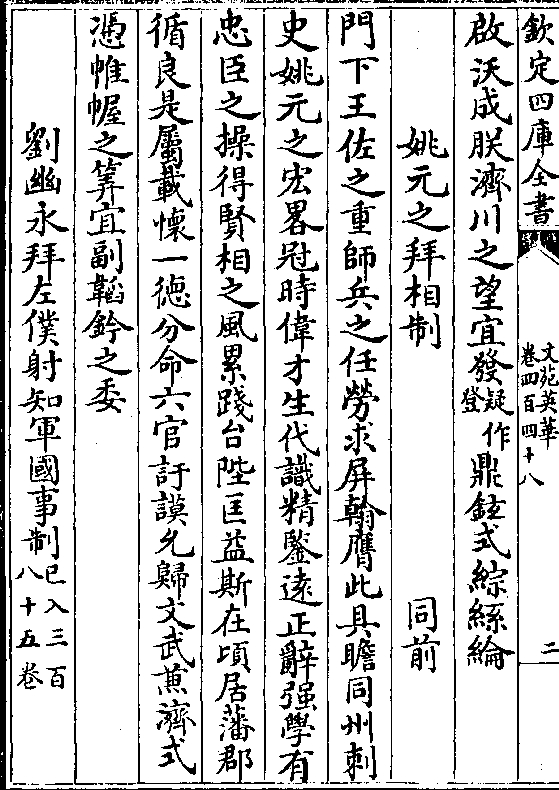 欽定四庫全書
文苑英華
卷四百四十八
二
啟沃成朕濟川之望宜發疑作登鼎鉉式綜絲綸
姚元之拜相制
同前
門下王佐之重師兵之任勞求屏翰膺此具瞻同州刺
史姚元之宏畧冠時偉才生代識精鑒遠正辭强學有
忠臣之操得賢相之風累踐台陛匡益斯在頃居藩郡
循良是屬載懷一徳分命六官訏謨允歸文武兼濟式
憑帷幄之筭宜副韜鈐之委
劉幽求拜左僕射知軍國事制已入三百八十五卷